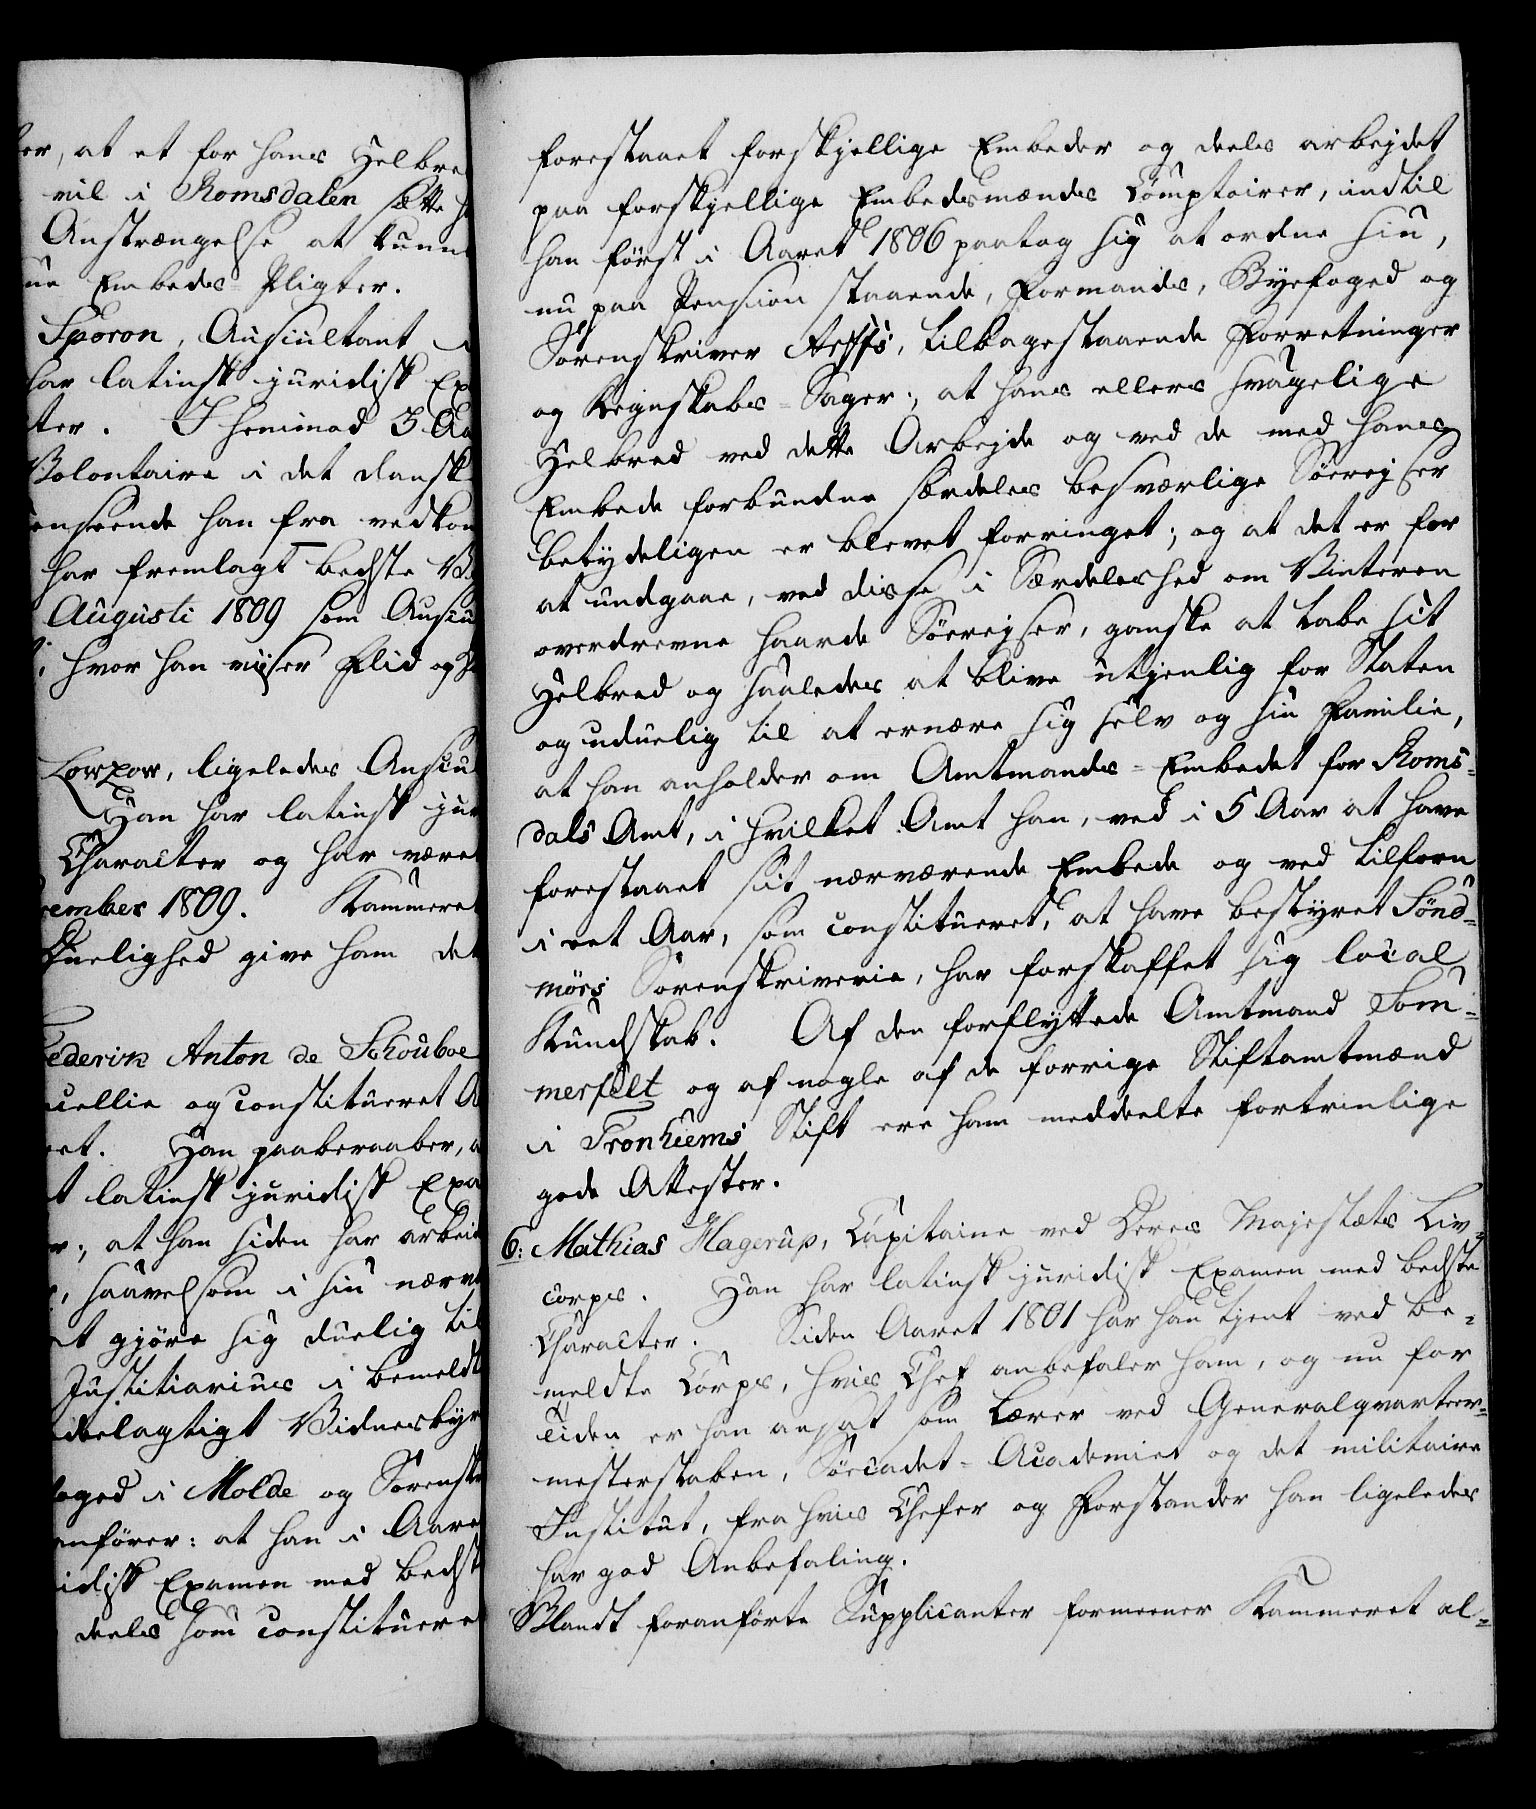 er, at et for hans Helbre
vil i Romsdalen sætte h
Anstrængelse at kunn
ne Embeds-Pligter.
Sporon, Auscultant i
har latinsk juridisk Ex
ter. I henimod 3 Aa
Volontaire i det dansk
enseende han fra vedkom
har fremlagt bedste
Augusti 1809 som Auscu
hvor han viiser Flid og
Lowzow, ligeledes Auscu
Han har latinsk jur
Character og har være
cember 1809. Kammeret
Duelighed give ham det
ederik Anton de Schouboe
cellie og constitueret A
et. Han paaberaaber, a
t latinsk juridisk Exa
r; at han siden har arbeid
, saavelsom i sin nærv
t gjöre sig duelig til
Justitiarius i bemeldt
delagtigt Vidnesbyr
foged i Molde og Sorensk
nförer: at han i Aare
idisk Examen med bedst
deels som constituere
forestaaet forskjellige Embeder og deels arbejdet
paa forskjellige Embedsmænds Comptoirer, indtil
han först i Aaret 1806 paatog sig at ordne sin,
nu paa Pension staaende, Formands, Byefoged og
Sorenskriver Aeffs, tilbagestaaende Forretninger
og Regnskabs-Sager; at hans ellers svagelige
Helbred ved dette Arbejde og ved de med hans
Embede forbundne særdeles besværlige Söerejser
betydeligen er blevet forringet; og at det er for
at undgaae, ved disse i Særdeleshed om Vinteren
overdrevne haarde Söerejser, ganske at tabe sit
Helbred og saaledes at blive utjenlig for Staten
og uduelig til at ernære sig selv og sin Familie,
at han anholder om Amtmands-Embedet for Roms-
dals Amt, i hvilket Amt han, ved i 5 Aar at have
forestaaet sit nærværende Embede og ved tilforn
i eet Aar, som constitueret, at have bestyret Sönd-
mörs Sorenskriverie, har forskaffet sig local
Kundskab. Af den forflyttede Amtmand Som-
merfelt og af nogle af de forrige Stiftamtmænd
i Tronhiems Stift ere ham meddeelte fortrinlige
gode Attester.
6: Mathias Hagerup, Capitaine ved Deres Majestæts Liv-
corps. Han har latinsk juridisk Examen med bedste
Character. Siden Aaret 1801 har han tjent ved be-
meldte Corps, hvis Chef anbefaler ham, og nu for
Tiden er han ansat som Lærer ved Generalqvarteer-
mesterstaben, Söecadet-Academiet og det militaire
Institut, fra hvis Chefer og Forstander han ligeledes
har god Anbefaling.
Blandt foranförte Supplicanter formeener Kammeret al-